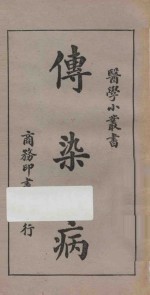 醫學小叢書
傳染病
商務印書
行